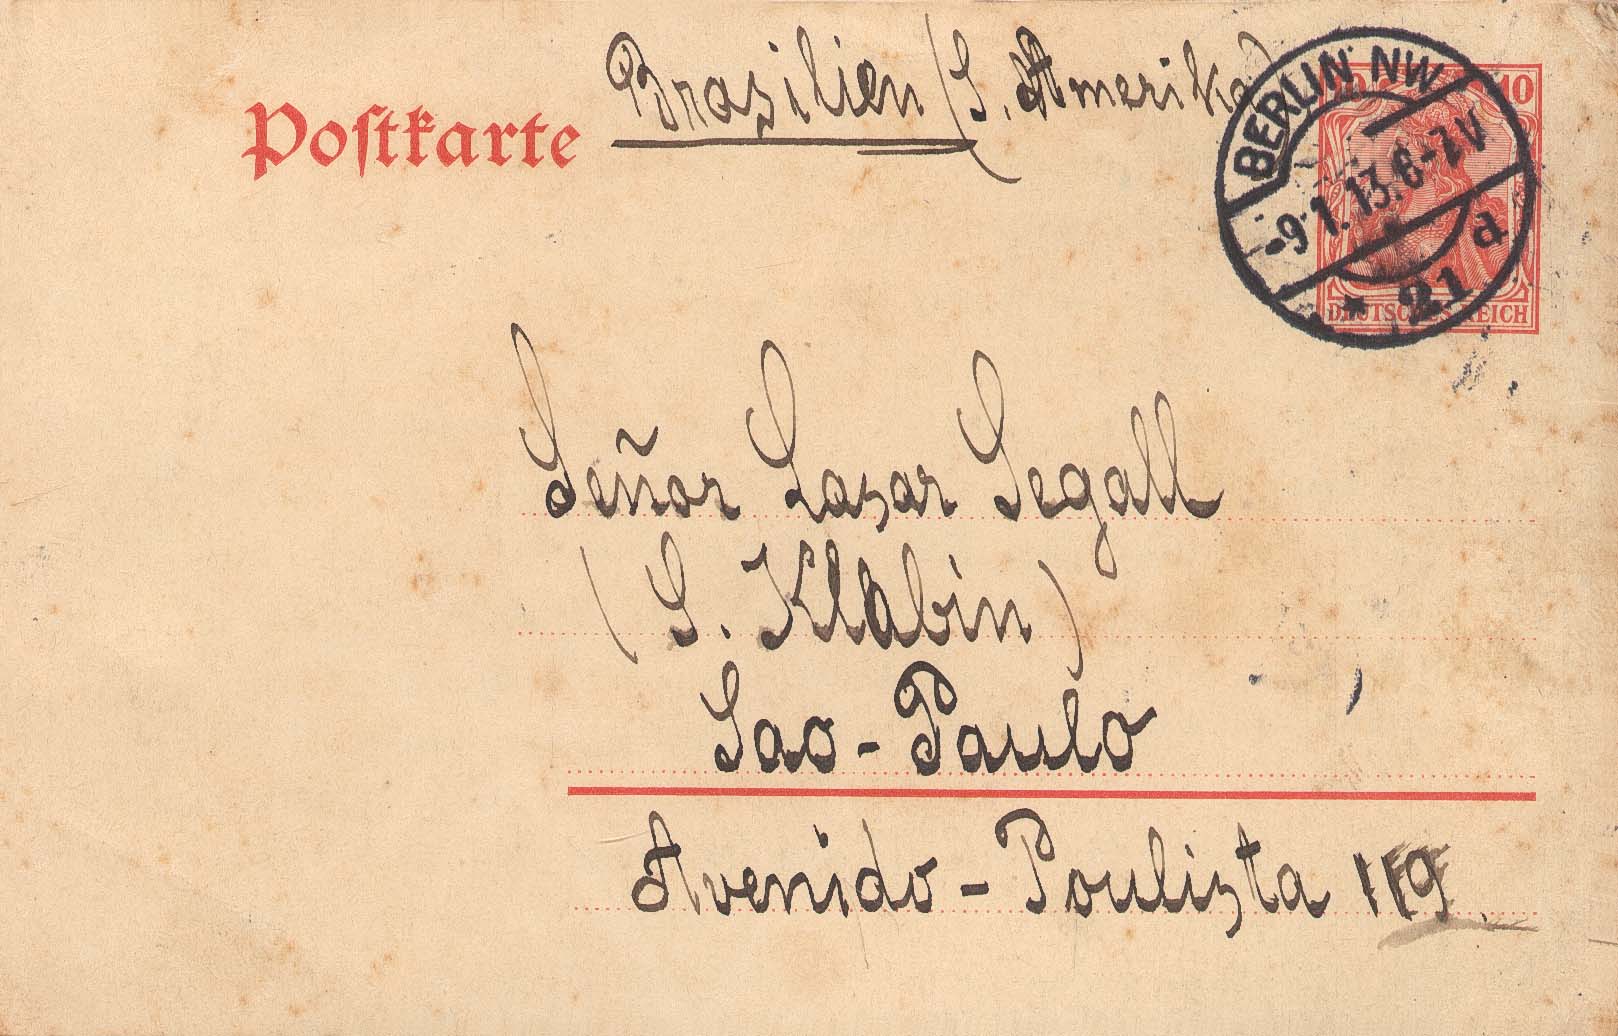 Brasilien (S. Amerika)
Postkarte
BERLIN NW
10
-9.1.13.6-7V
* 21 d
DEUTSCHES REICH
Señor Lasar Segall
(S. Klabin)
Sao-Paulo
Avenido-Poulista 119